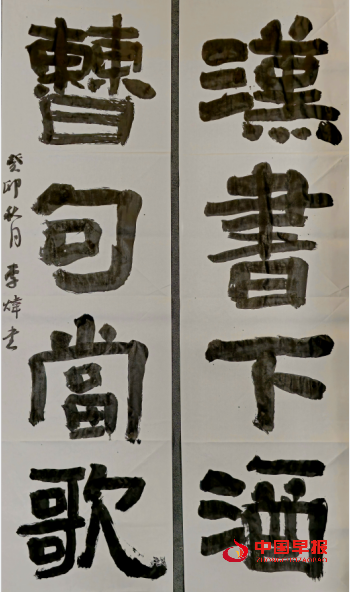 漢書下酒
曹句當歌
癸卯秋月 李煒书
中国早报